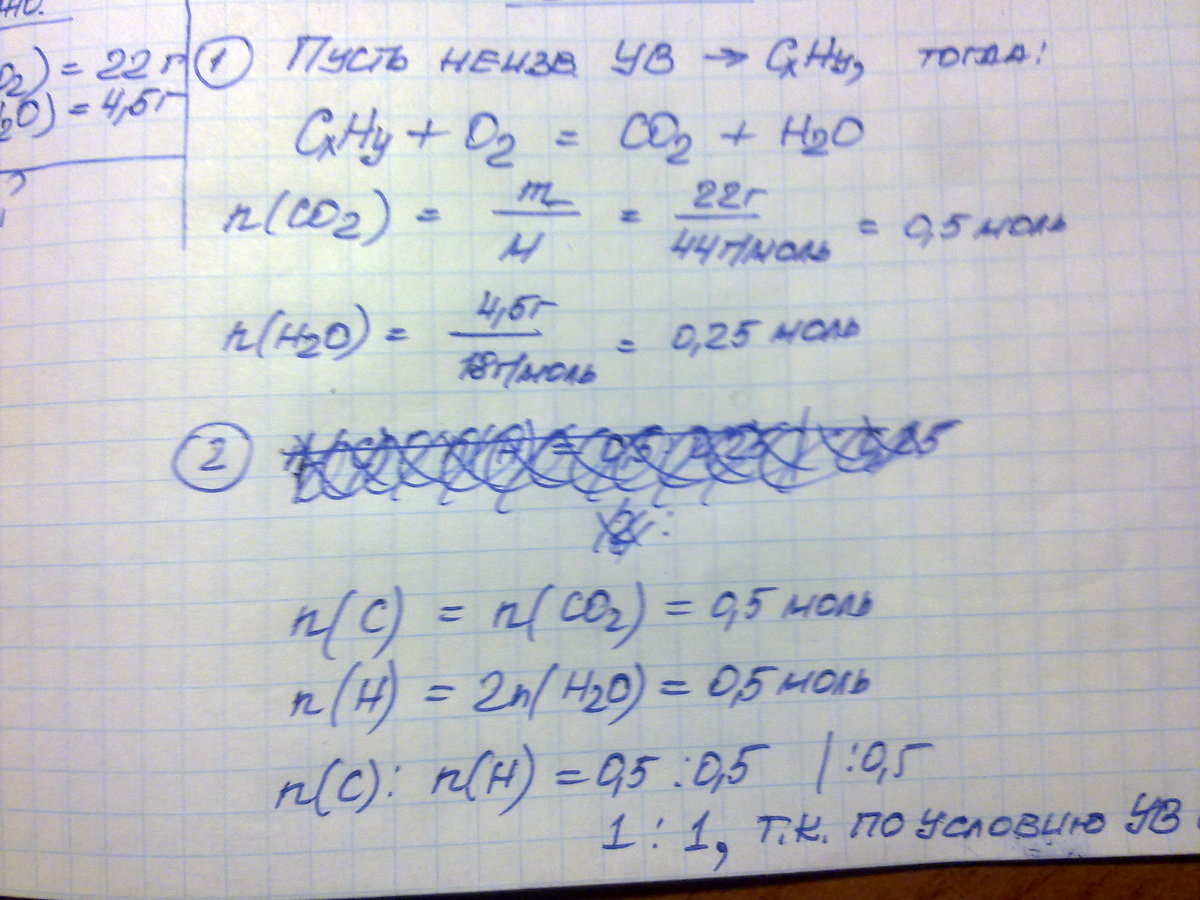 O₂) = 22 г
H₂O) = 4,5 г
① Пусть неизв УВ → CₓHᵧ, тогда:
CₓHᵧ + O₂ = CO₂ + H₂O
n(CO₂) = m/M = 22г/44г/моль = 0,5 моль
n(H₂O) = 4,5г/18г/моль = 0,25 моль
②
n(C) = n(CO₂) = 0,5 моль
n(H) = 2n(H₂O) = 0,5 моль
n(C) : n(H) = 0,5 : 0,5 | :0,5
1 : 1, т.к. по условию УВ